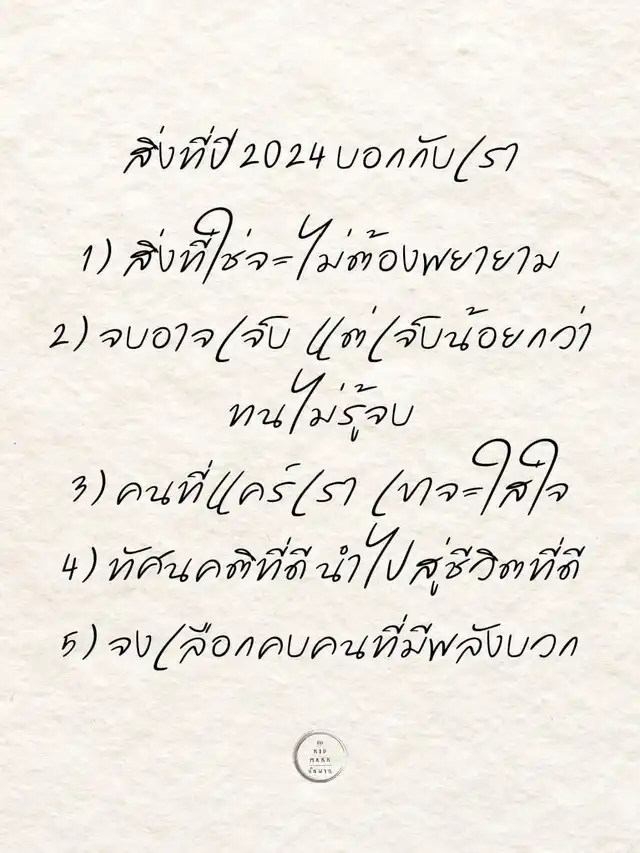 สิ่งที่ปี 2024 บอกกับเรา
1) สิ่งที่ใช่จะไม่ต้องพยายาม
2) จบอาจเจ็บ แต่เจ็บน้อยกว่า
ทนไม่รู้จบ
3) คนที่แคร์เรา เขาจะใส่ใจ
4) ทัศนคติที่ดี นำไปสู่ชีวิตที่ดี
5) จงเลือกคบคนที่มีพลังบวก
KID
MAKK